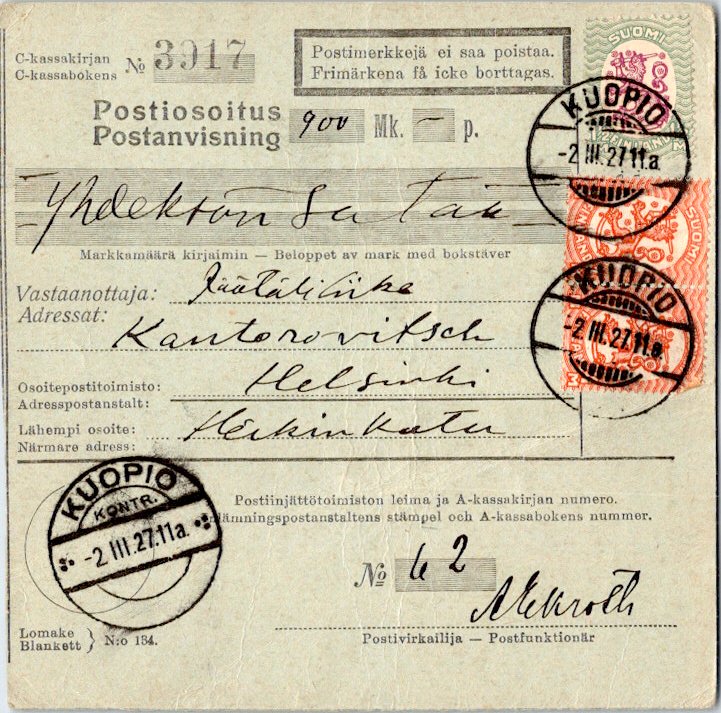 C-kassakirjan
C-kassabokens № 3917
Postimerkkejä ei saa poistaa.
Frimärkena få icke borttagas.
SUOMI
Postiosoitus
Postanvisning 900 Mk. — p.
KUOPIO
-2 III.27.11.a.
Yhdeksän sa taa
Markkamäärä kirjaimin — Beloppet av mark med bokstäver
SUOMI
Vastaanottaja: Räätäliliike
Adressat:
Kantorovitsch
KUOPIO
-2 III.27.11.a.
Osoitepostitoimisto: Helsinki
Adresspostanstalt:
Lähempi osoite: Heikinkatu
Närmare adress:
KUOPIO
KONTR.
-2 III.27.11a.
Postiinjättötoimiston leima ja A-kassakirjan numero.
nlämningspostanstaltens stämpel och A-kassabokens nummer.
№ 62
Lomake
Blankett } N:o 134.
Postivirkailija — Postfunktionär